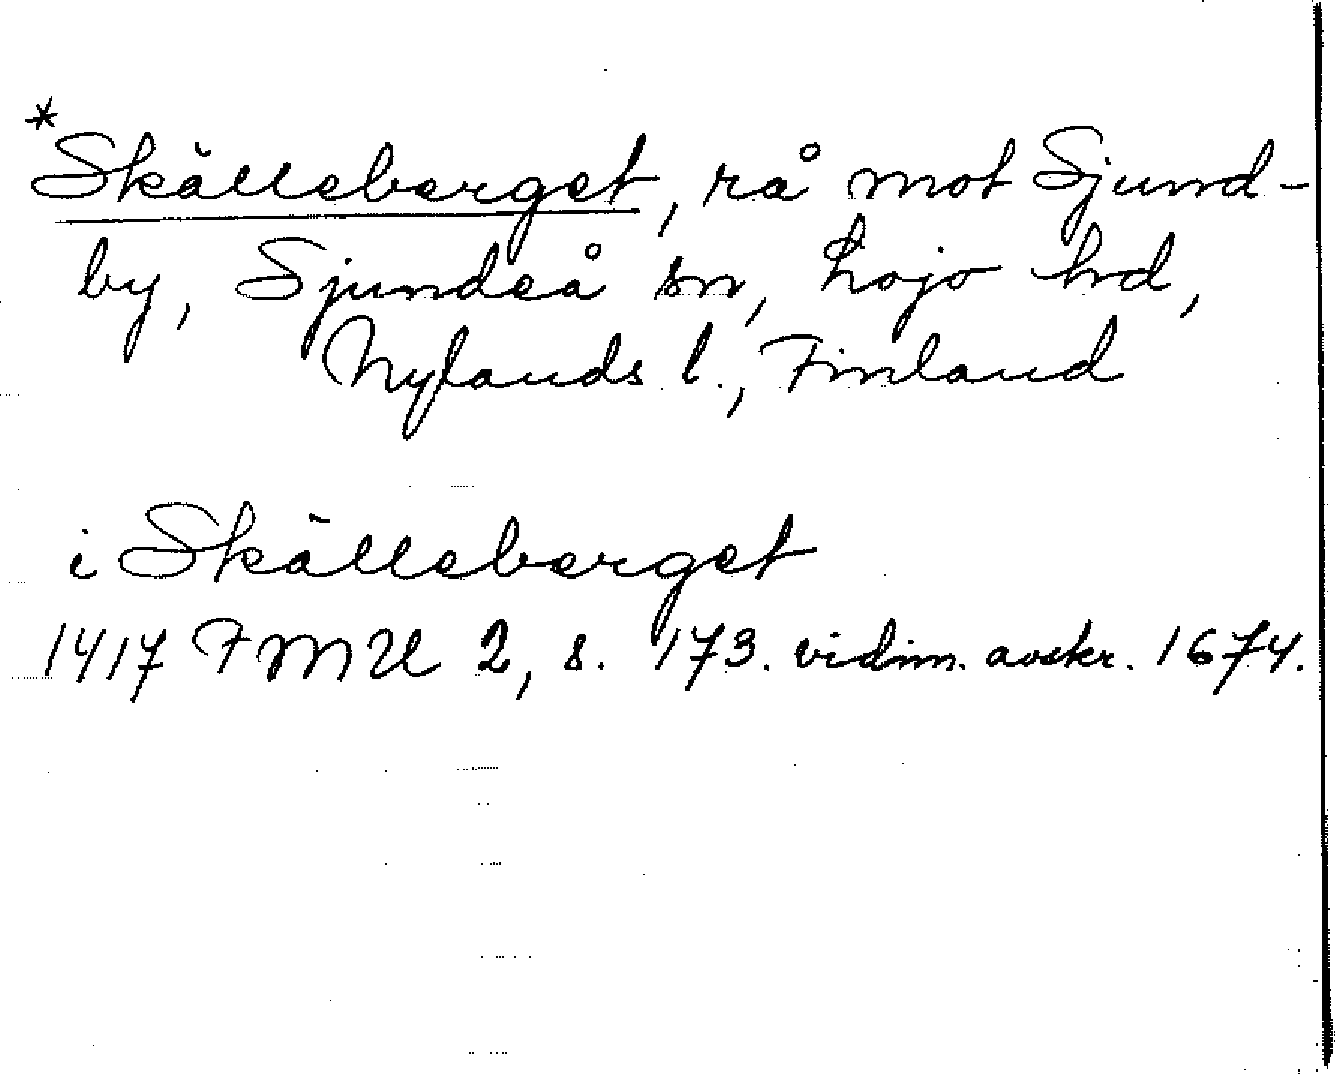 *Skälleberget, rå mot Sjund-
by, Sjundeå sn, Lojo hd,
Nylands l., Finland
i Skälleberget
1417 FMU 2, s. 173. vidim. avskr. 1674.